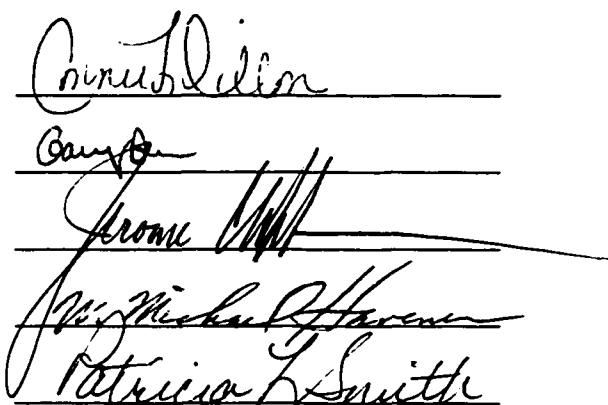 Connie L Dillon
Gary
Jerome
W. Michael Havener
Patricia L Smith